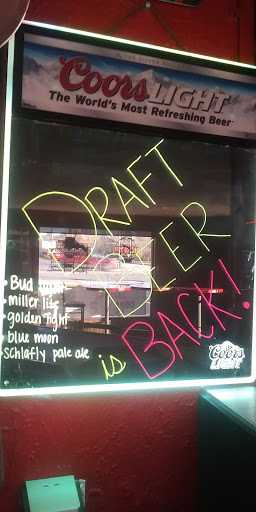 Coors LIGHT
The World's Most Refreshing Beer
DRAFT
BEER
is BACK!
• Bud
• miller lite
• golden light
• blue moon
• schlafly pale ale
Coors
LIGHT